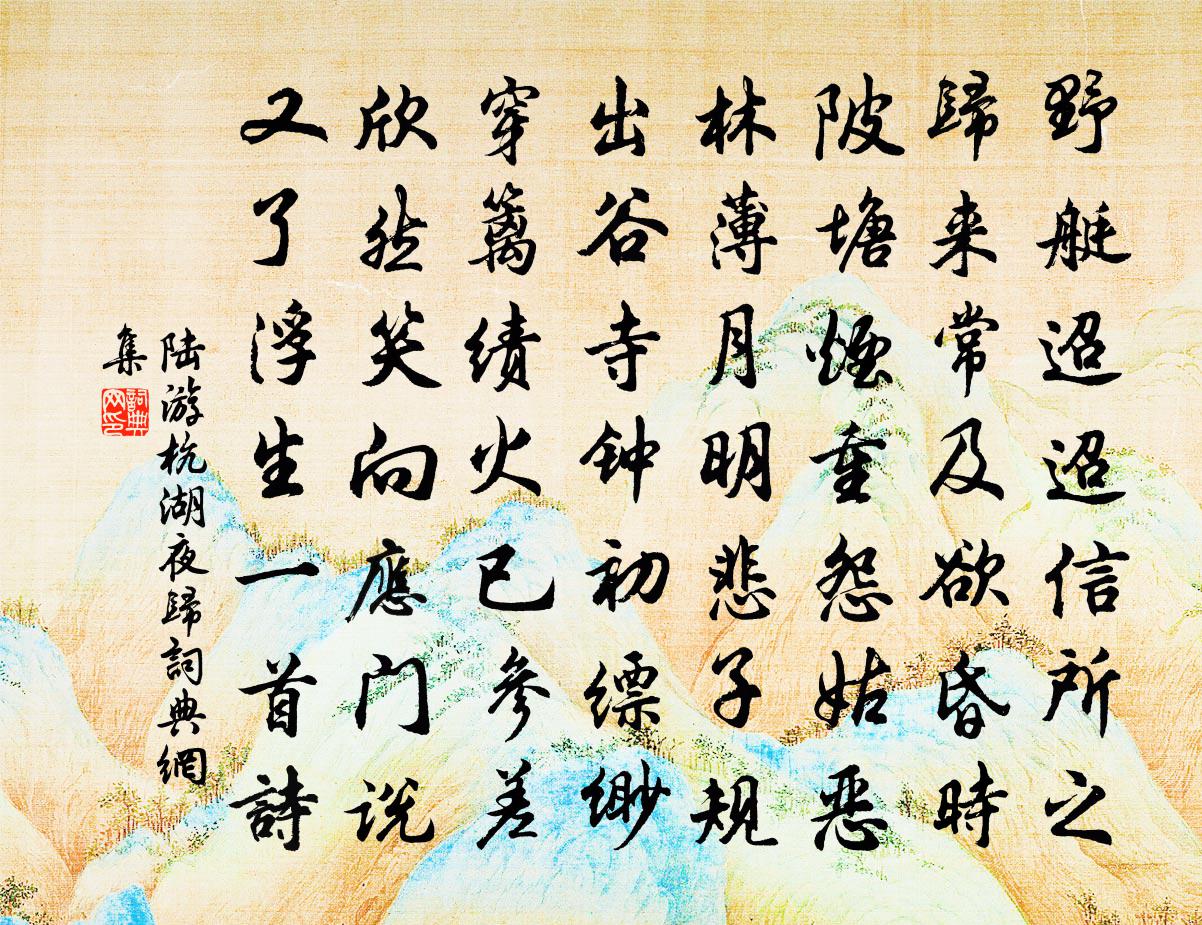 野艇迢迢信所之
歸来常及欲昏時
陂塘煙重怨姑恶
林薄月明悲子規
出谷寺钟初缥缈
穿籬績火已参差
欣然笑向應门说
又了浮生一首詩
陸游杭湖夜歸詞典網
集
詞典
网印